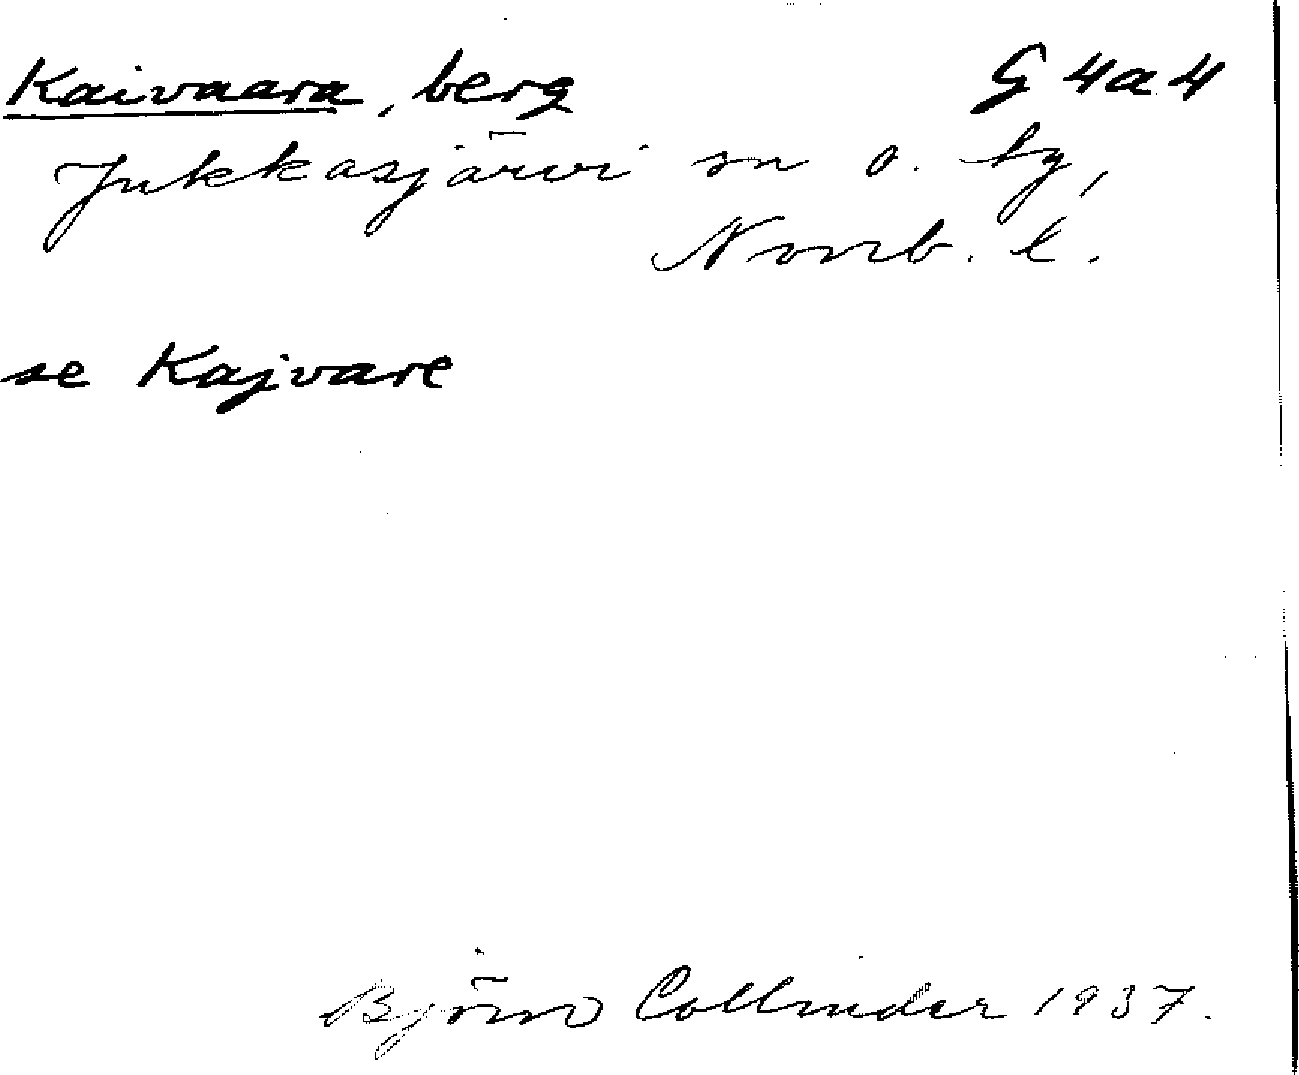 Kaivaara, berg G 4a4
Jukkasjärvi sn o. tg,
Norrb. l.
se Kajvare
Björn Collinder 1937.